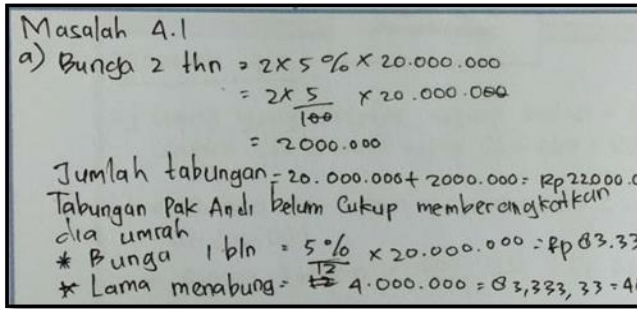 Masalah 4.1
a) Bunga 2 thn = 2 x 5% x 20.000.000
= 2 x 5/100 x 20.000.000
= 2000.000
Jumlah tabungan = 20.000.000 + 2000.000 = Rp 22000.0
Tabungan Pak Andi belum Cukup memberangkatkan
dia umrah
* Bunga 1 bln = 5%/12 x 20.000.000 = Rp 83.33
* Lama menabung = 4.000.000 = 83,333,33 = 4